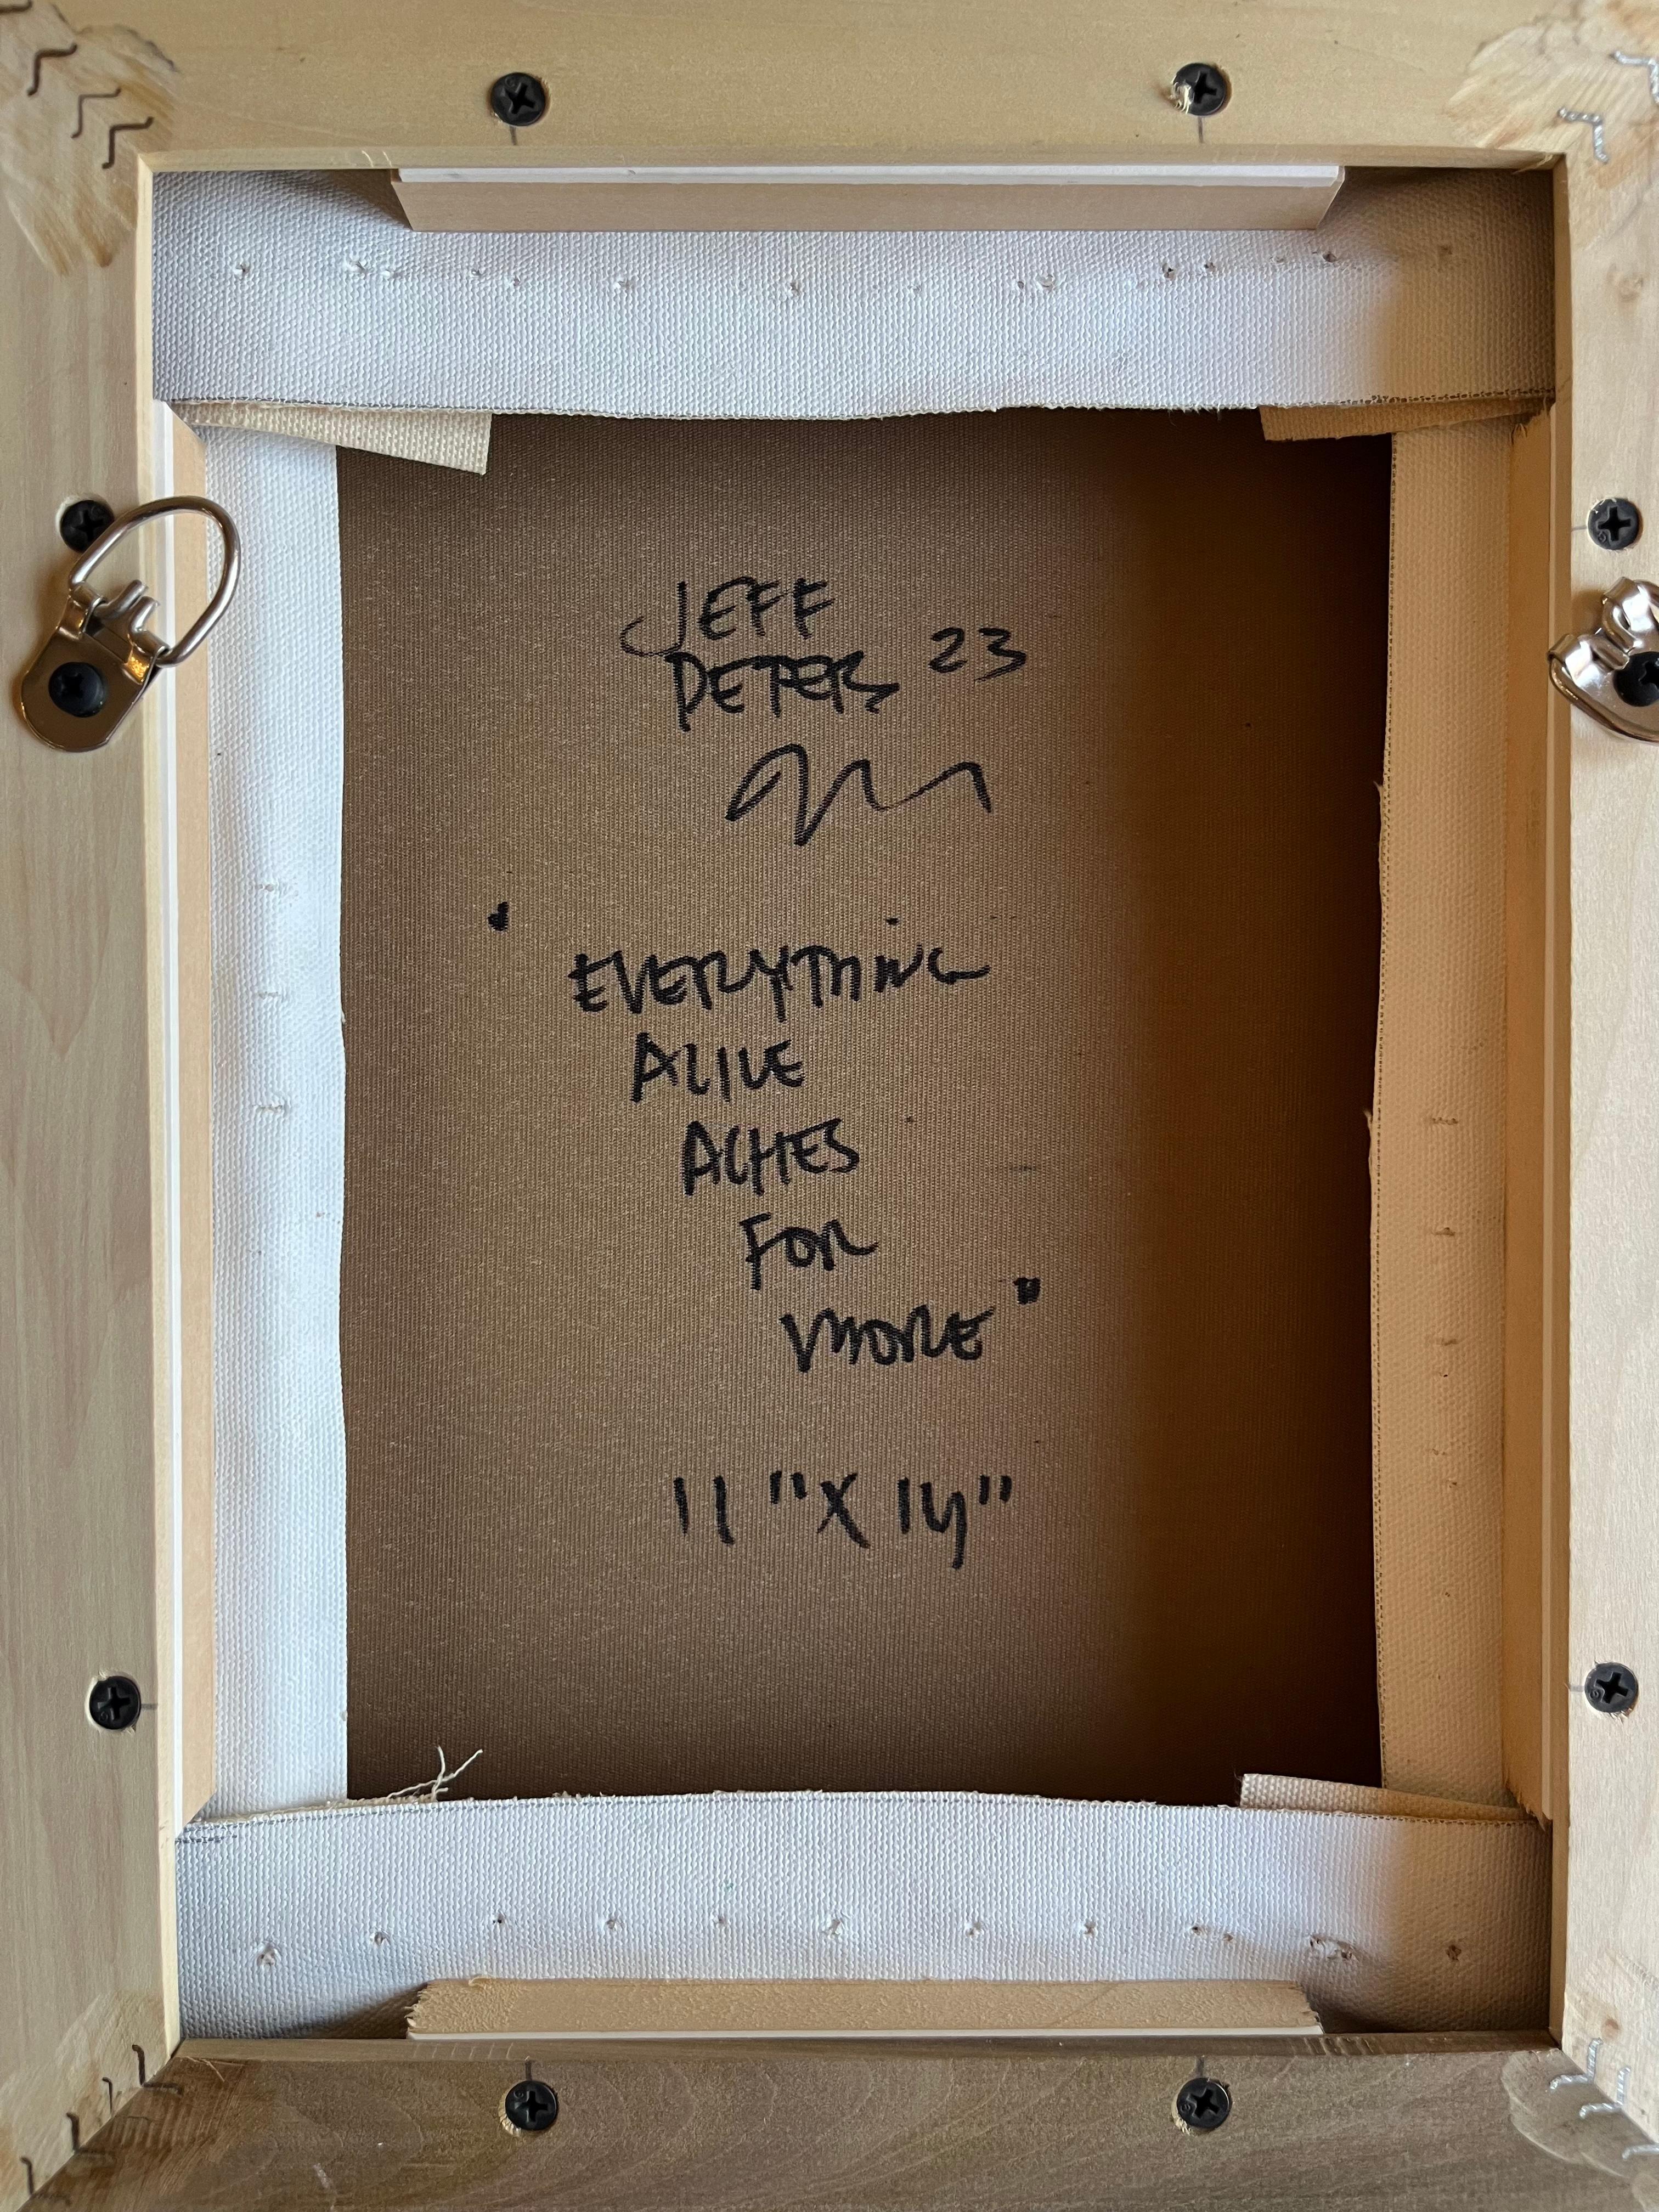 JEFF
PETERS 23
"EVERYTHING
ALIVE
ACHES
FOR
MORE"
11" X 14"